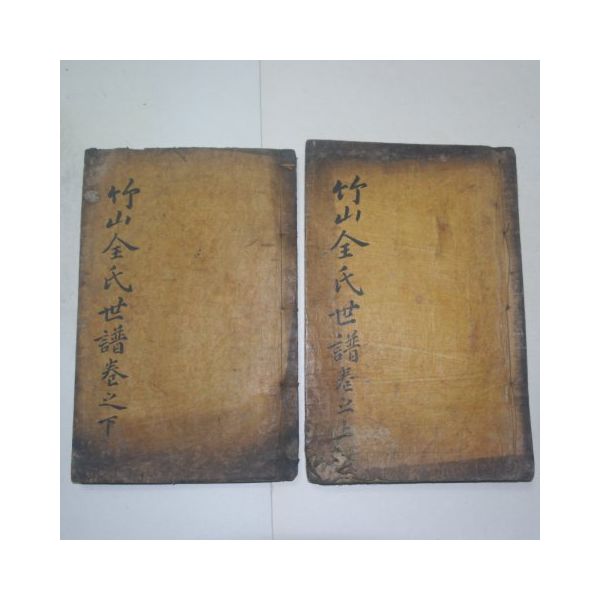 竹山全氏世譜卷之上
竹山全氏世譜卷之下